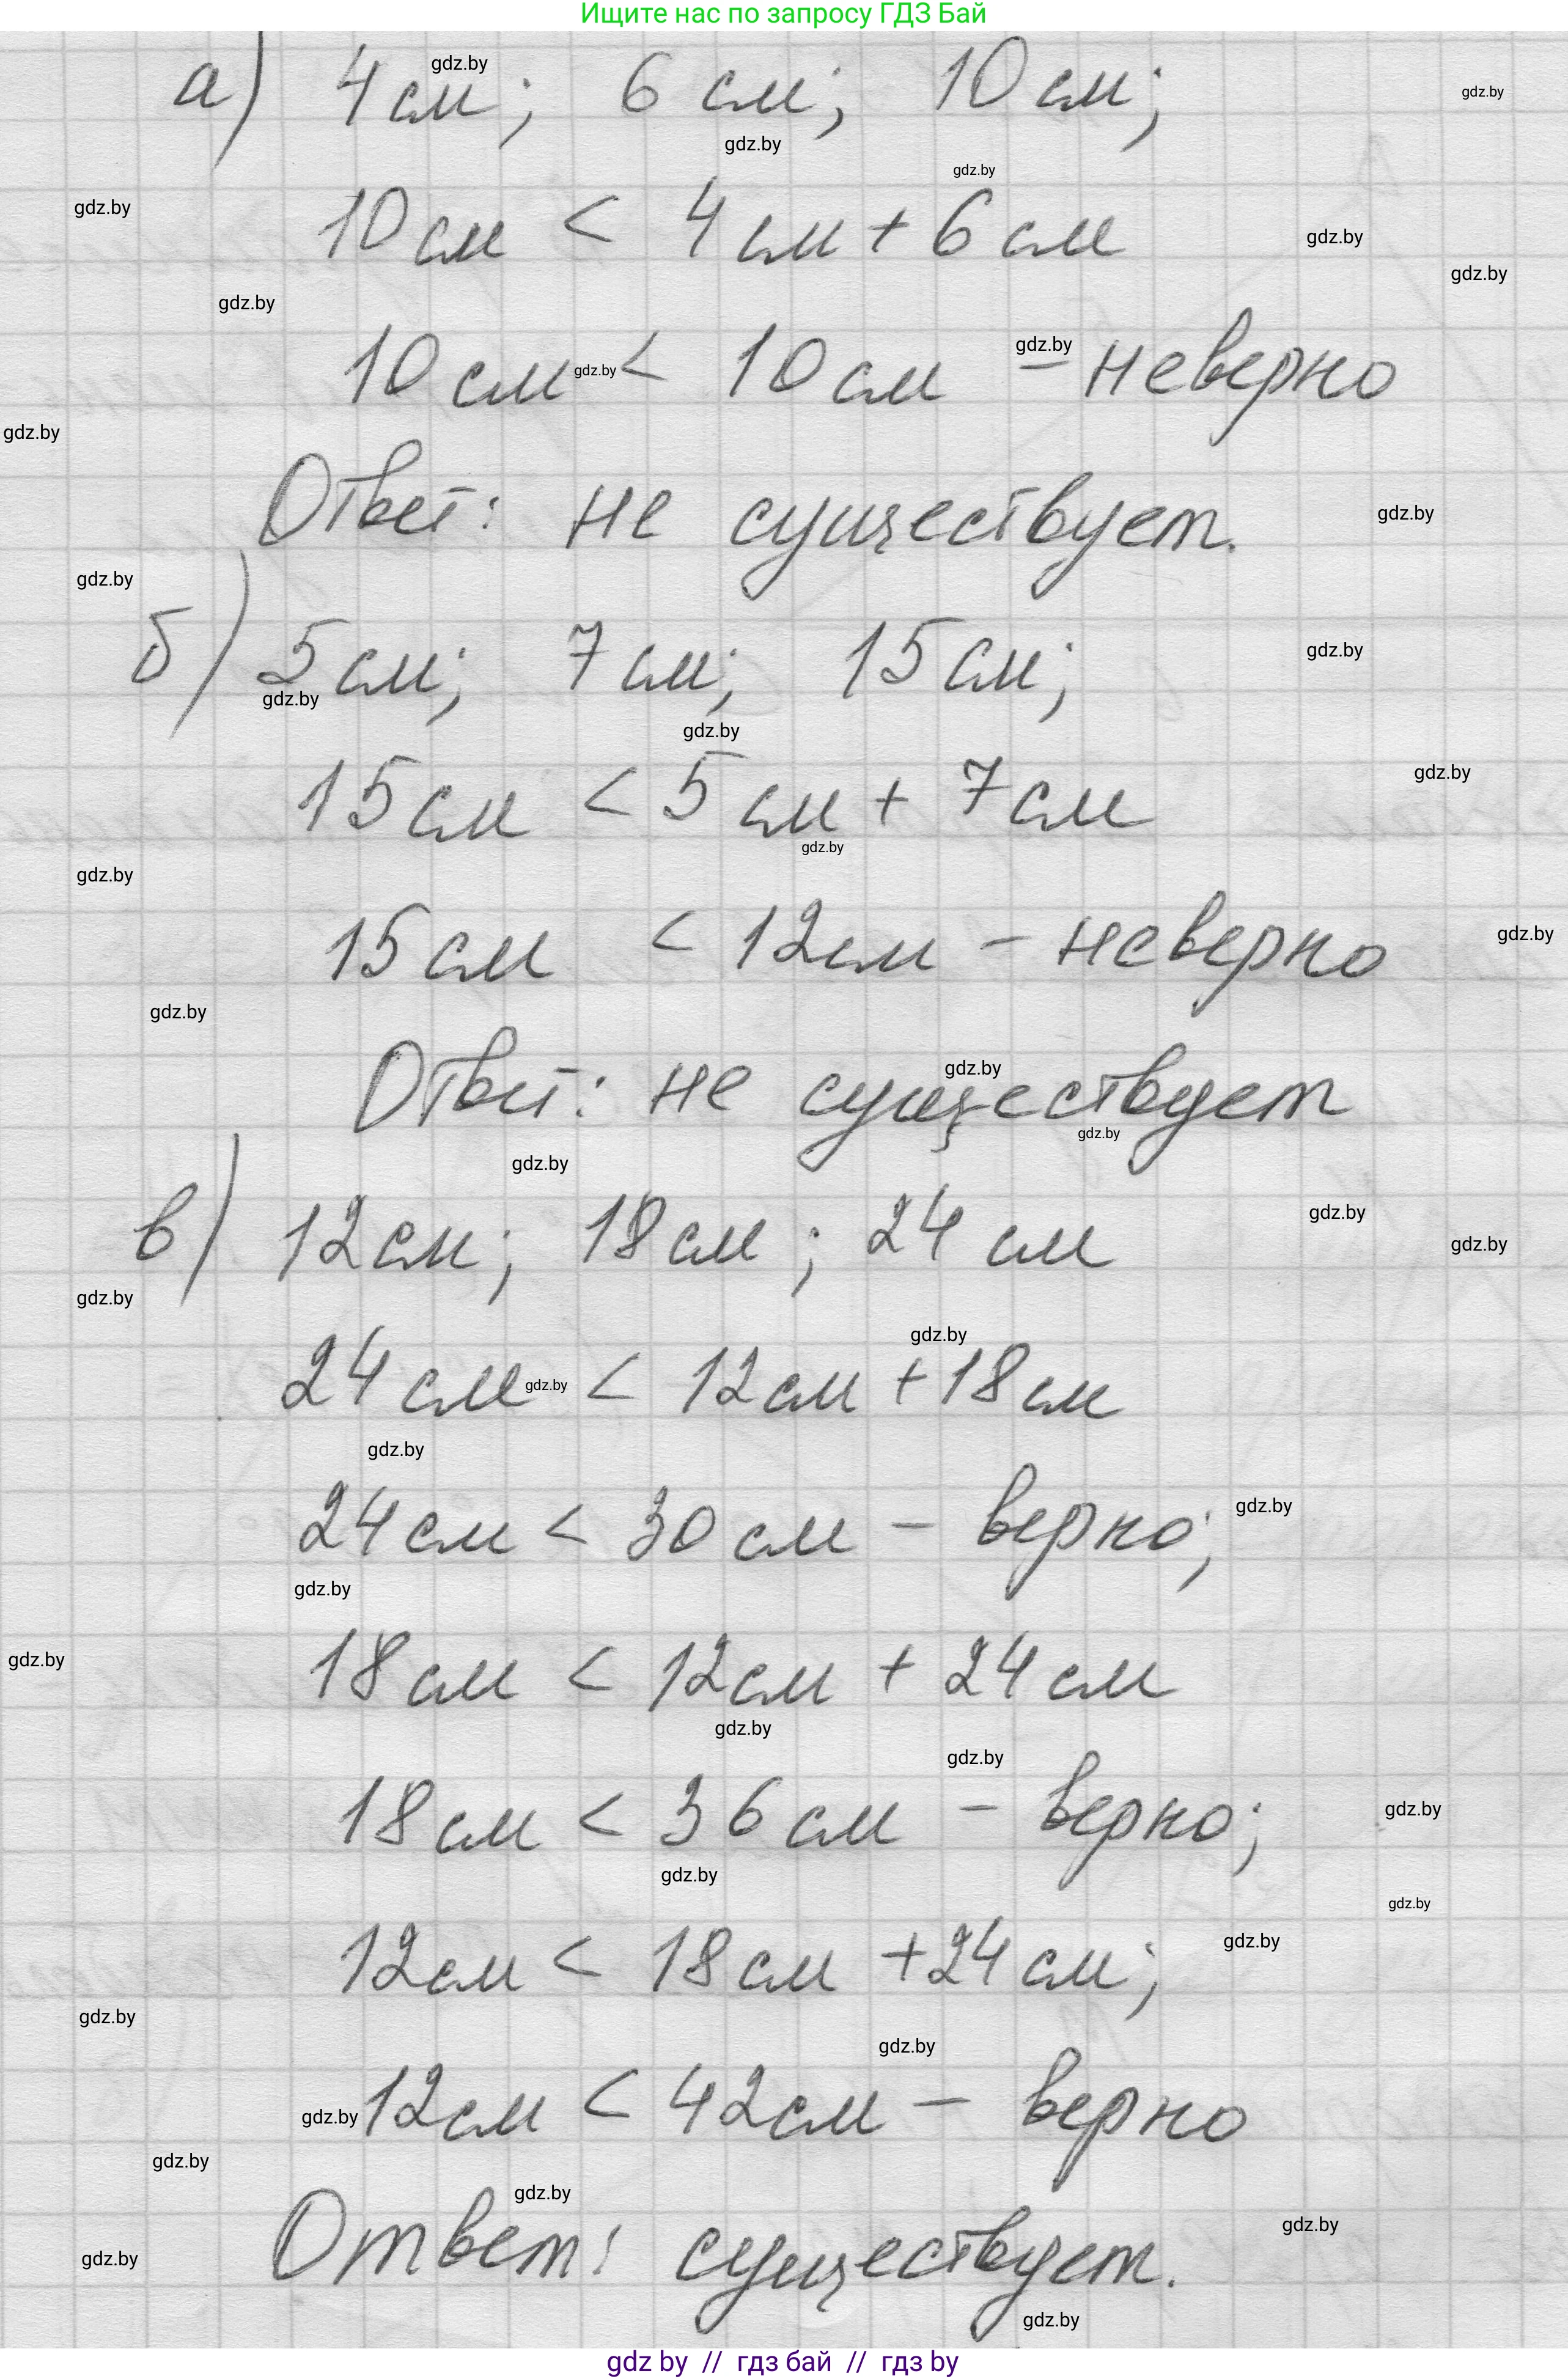 Ищите нас по запросу ГДЗ Бай
а) 4 см; 6 см; 10 см;
10 см < 4 см + 6 см
10 см < 10 см - неверно
Ответ: не существует.
б) 5 см; 7 см; 15 см;
15 см < 5 см + 7 см
15 см < 12 см - неверно
Ответ: не существует
в) 12 см; 18 см; 24 см
24 см < 12 см + 18 см
24 см < 30 см - верно;
18 см < 12 см + 24 см
18 см < 36 см - верно;
12 см < 18 см + 24 см;
12 см < 42 см - верно
Ответ: существует.
gdz by // гдз бай // гдз by